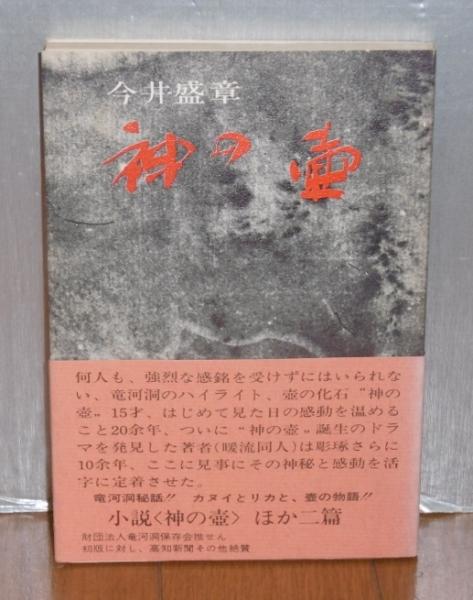 今井盛章
神の壷
何人も、強烈な感銘を受けずにはいられな
い、竜河洞のハイライト、壺の化石〝神の
壺〟15才、はじめて見た日の感動を温めるこ
と20余年、ついに〝神の壺〟誕生のドラ
マを発見した著者(暖流同人)は彫琢さらに
10余年、ここに見事にその神秘と感動を活
字に定着させた。
竜河洞秘話!! カヌイとリカと、壺の物語!!
小説〈神の壺〉ほか二篇
財団法人竜河洞保存会推せん
初版に対し、高知新聞その他絶賛